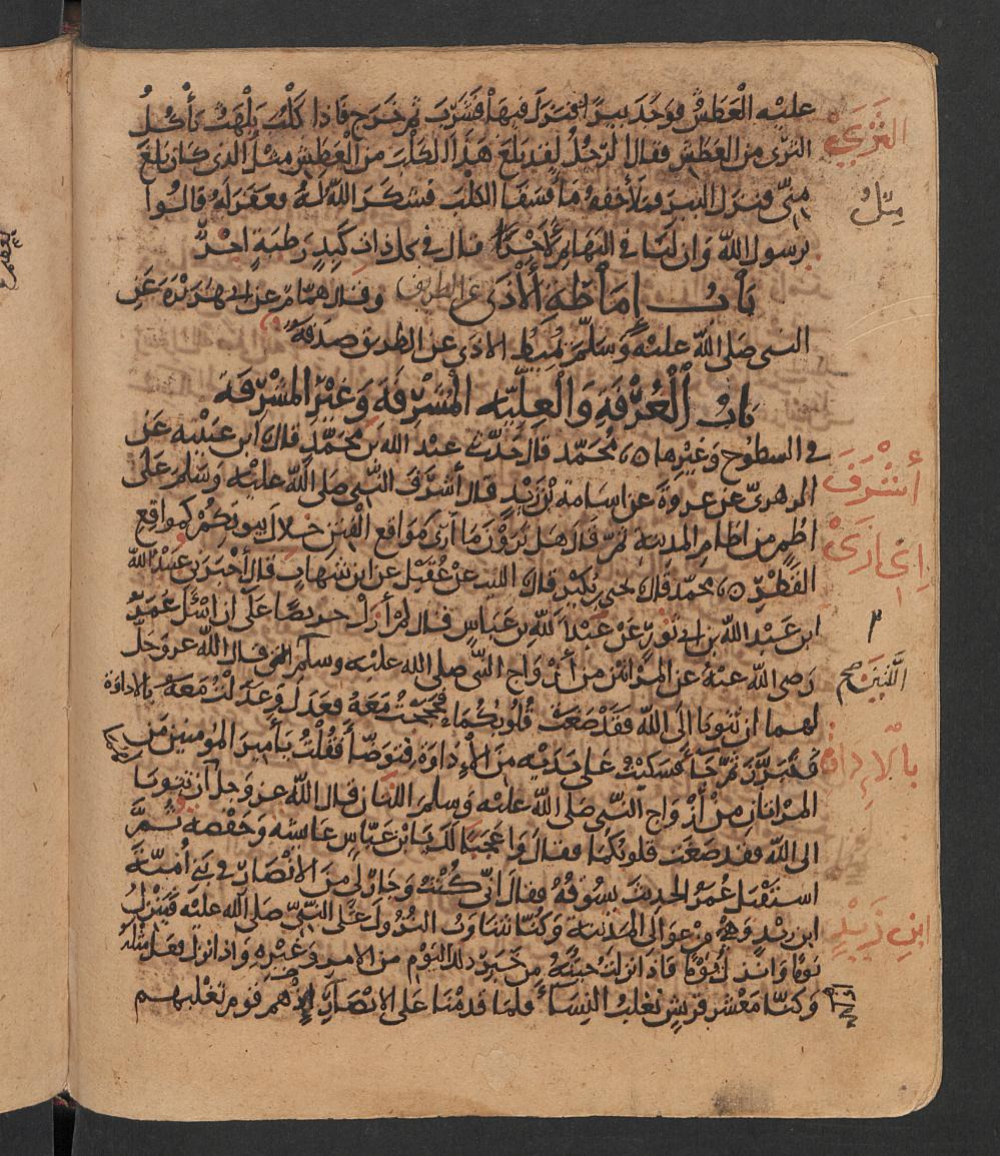 عليه العطش فوجد بيرا فنزل فيها فشرب ثم خرج فاذا كلب يلهث يأكل
الثرى من العطش فقال الرجل لقد بلغ هذا الكلب من العطش مثل الذى كان بلغ
منى فنزل البير فملأ خفه ماً فسقا الكلب فشكر الله له فغفر له قالوا
يرسول الله وان لنا في البهايم لأجرًا قال في كل ذات كبد رطبة اجر
باب إماطة الأذى عن الطريق وقال همام عن ابى هريرة عن
النبى صلى الله عليه وسلم تميط الاذى عن الطريق صدقة
باب الغرفة والعلية المشرفة وغير المشرفة
في السطوح وغيرها محمد قال حدثني عبد الله بن محمد قال ابن عيينه عن
الزهرى عن عروة عن اسامة بن زيد قال أشرف النبي صلى الله عليه وسلم على
اطم من اطام المدينة ثم قال هل ترون ما أرى مواقع الفتن خلال بيوتكم كمواقع
القطر محمد قال يحيى بن بكير قال الليث عن عقيل عن ابن شهاب قال أخبرنى عبيد الله
ابن عبد الله بن ابى ثور عن عبد الله بن عباس قال لم أزل حريصا على ان اسأل عمر
رضى الله عنه عن المراتين من أزواج النبي صلى الله عليه وسلم قال الله عز وجل
لهما ان تتوبا الى الله فقد صغت قلوبكما فحججت معه فعدل وعدلت معه بالاداوة
فتبرز ثم جا فسكبت على يديه من الإداوة فتوضأ فقلت يا أمير المؤمنين من
المراتان من أزواج النبي صلى الله عليه وسلم اللتان قال الله عز وجل ان تتوبا
الى الله فقد صغت قلوبكما فقال واعجبا لك يا ابن عباس عايشه وحفصه ثم
استقبل عمر الحديث يسوقه فقال انى كنت وجار لي من الانصار في بني أمية
ابن زيد وهى من عوالى المدينة وكنا نتناوب النزول على النبي صلى الله عليه فينزل
يوما وانزل يوما فاذا نزلت جيته من خبر ذلك اليوم من الامر وغيره واذا نزل فعل مثله
وكنا معشر قريش نغلب النسا فلما قدمنا على الانصار إذ هم قوم تغلبهم
الثرى
مثل
أشرف
إنى أرى
٢
اللتين صح
بالإداوة
ابن زيد